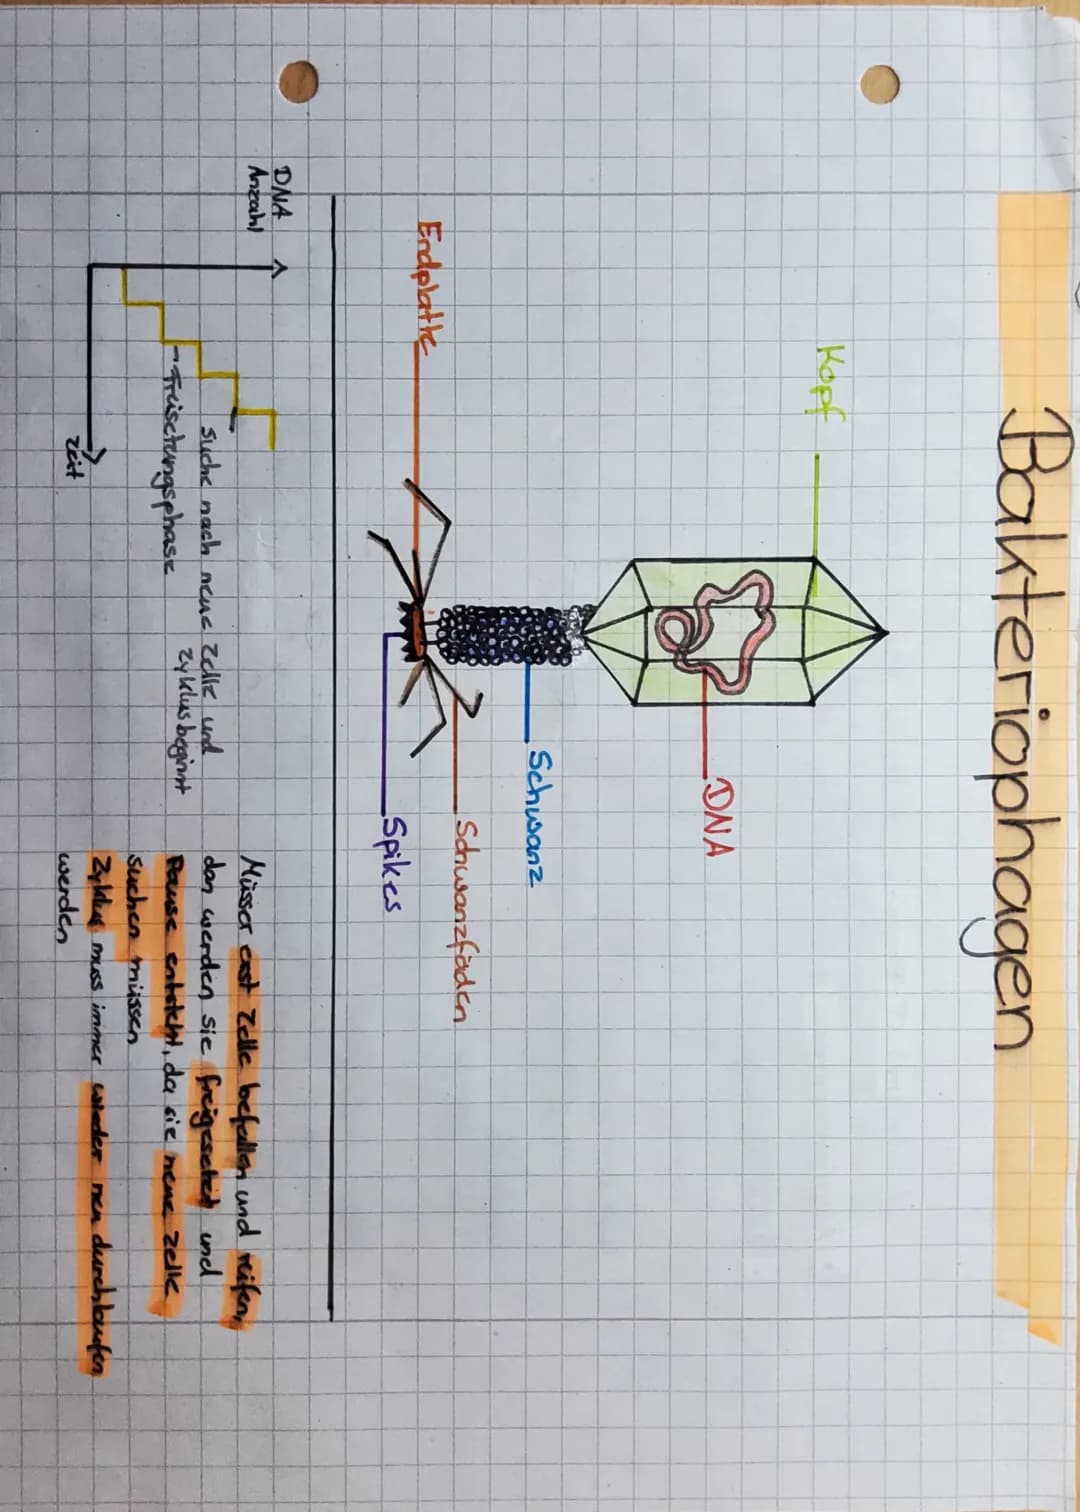 Bakteriophagen
Kopf
DNA
Schwanz
Endplatte
Schwanzfäden
Spikes
DNA
Anzahl
suche nach neue Zelle und
zyklus beginnt
-Freisetungsphase
Zeit
Müsser erst Zelle befallen und reifen,
dan werden sie freigesetzt und
Pause entsteht, da sie neue Zelle
suchen müssen
Zyklus muss immer wieder neu durchlaufen
werden